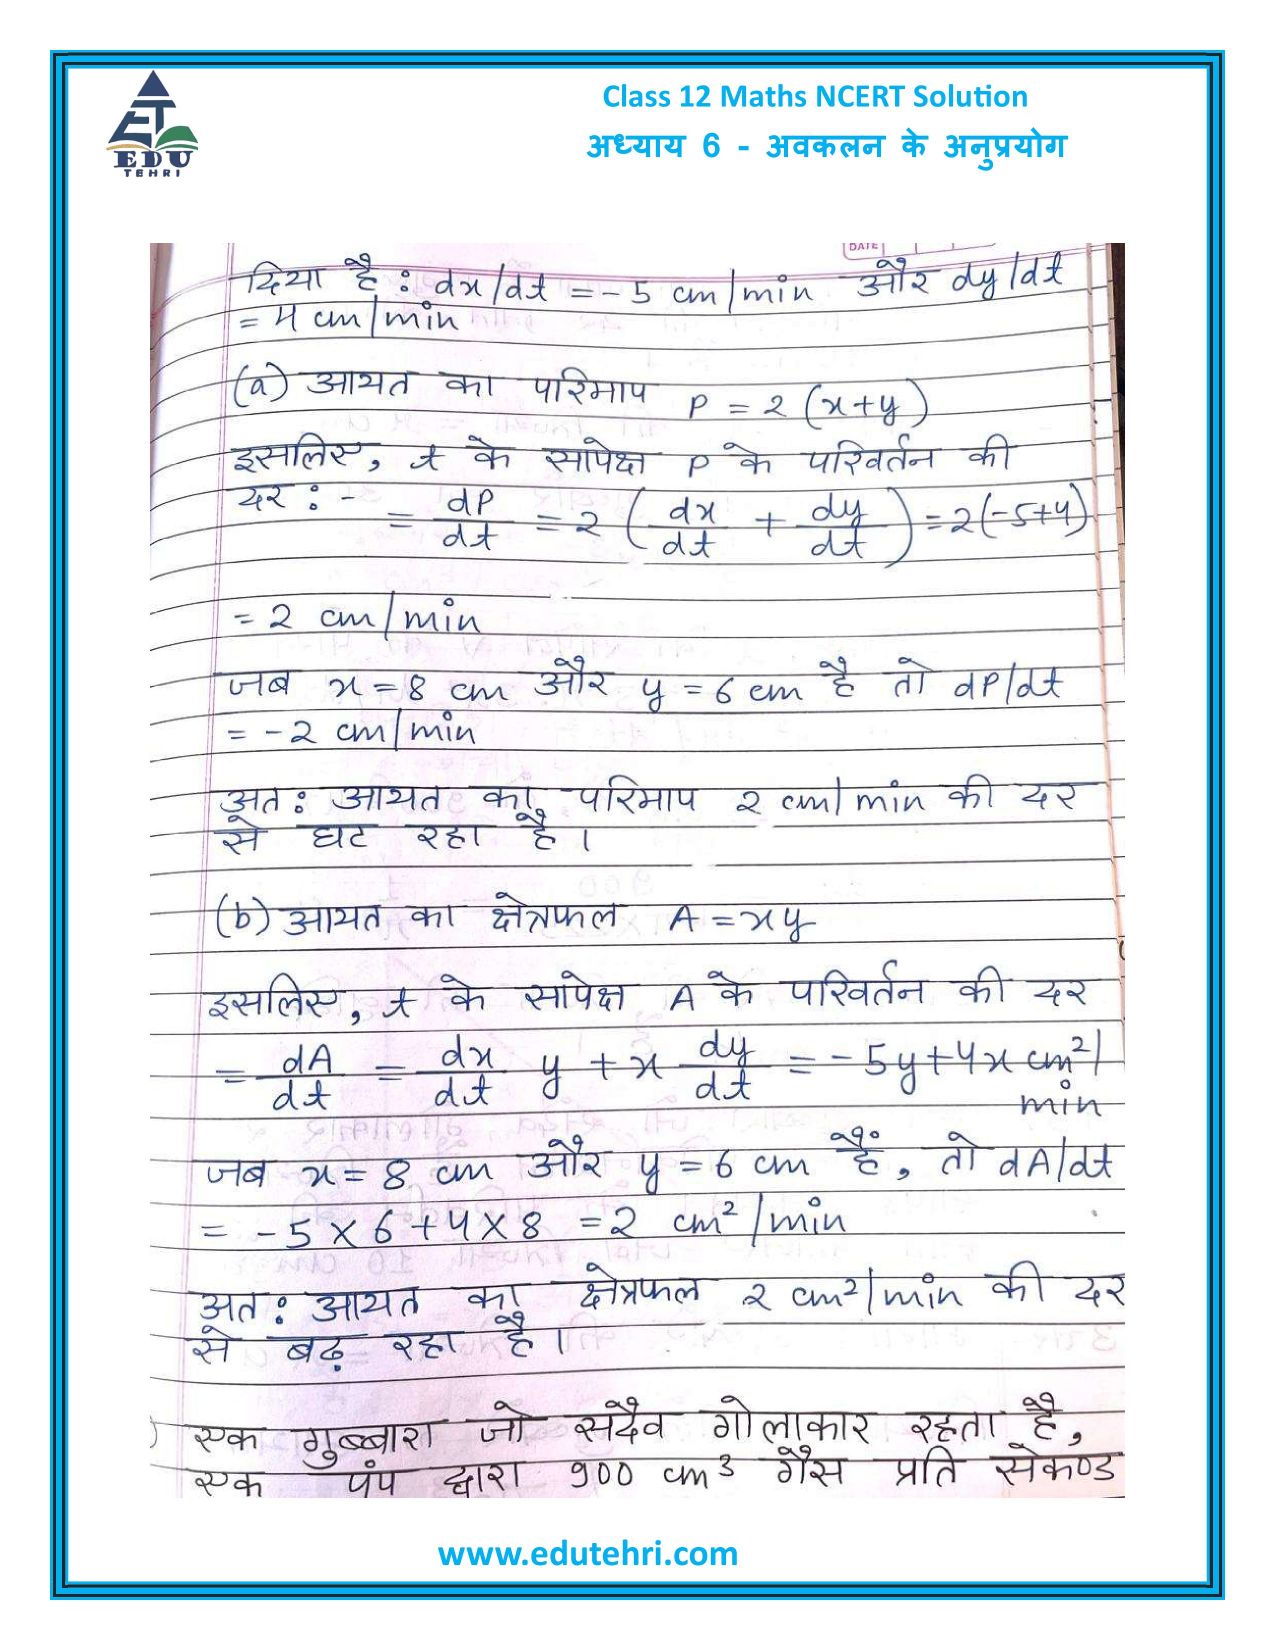 Class 12 Maths NCERT Solution
अध्याय 6 - अवकलन के अनुप्रयोग
EDU
TEHRI
DATE
दिया है : dx/dt = -5 cm/min और dy/dt
= 4 cm/min
(a) आयत का परिमाप P = 2 (x+y)
इसलिए, t के सापेक्ष P के परिवर्तन की
दर : - = dP/dt = 2 (dx/dt + dy/dt) = 2(-5+4)
= 2 cm/min
जब x = 8 cm और y = 6 cm है तो dP/dt
= -2 cm/min
अत: आयत का परिमाप 2 cm/min की दर
से घट रहा है ।
(b) आयत का क्षेत्रफल A = xy
इसलिए, t के सापेक्ष A के परिवर्तन की दर
= dA/dt = dx/dt y + x dy/dt = -5y+4x cm²/
min
जब x = 8 cm और y = 6 cm हैं, तो dA/dt
= -5 × 6 + 4 × 8 = 2 cm²/min
अत: आयत का क्षेत्रफल 2 cm²/min की दर
से बढ़ रहा है ।
एक गुब्बारा जो सदैव गोलाकार रहता है,
एक पंप द्वारा 900 cm³ गैस प्रति सेकण्ड
www.edutehri.com